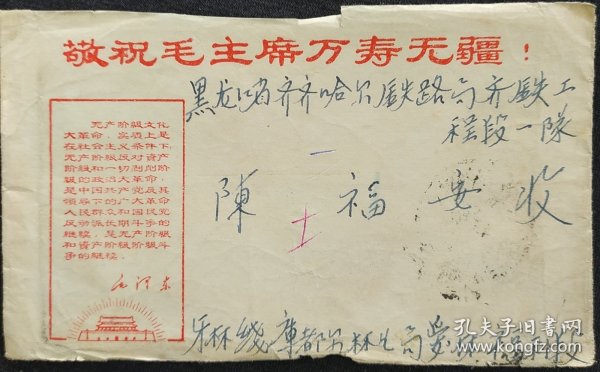 敬祝毛主席万寿无疆！
黑龙江省齐齐哈尔铁路局齐铁工
程段一隊
无产阶级文化
大革命，实质上是
在社会主义条件下，
无产阶级反对资产
阶级和一切剥削阶
级的政治大革命，
是中国共产党及其
领导下的广大革命
人民群众和国民党
反动派长期斗争的
继续，是无产阶级
和资产阶级阶级斗
争的继续。
毛泽东
陳福安收
牙林线库都尔林业局
孔夫子旧书网
www.kongfz.com